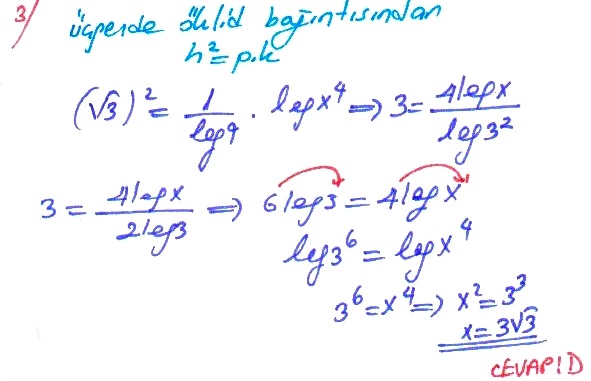 3/ üçgende öklid bağıntısından
h²=p.k
(√3)² = 1/log9 . logx⁴ ⇒ 3 = 4logx/log3²
3 = 4logx/2log3 ⇒ 6log3 = 4logx
log3⁶ = logx⁴
3⁶=x⁴ ⇒ x²=3³
x=3√3
CEVAP: D